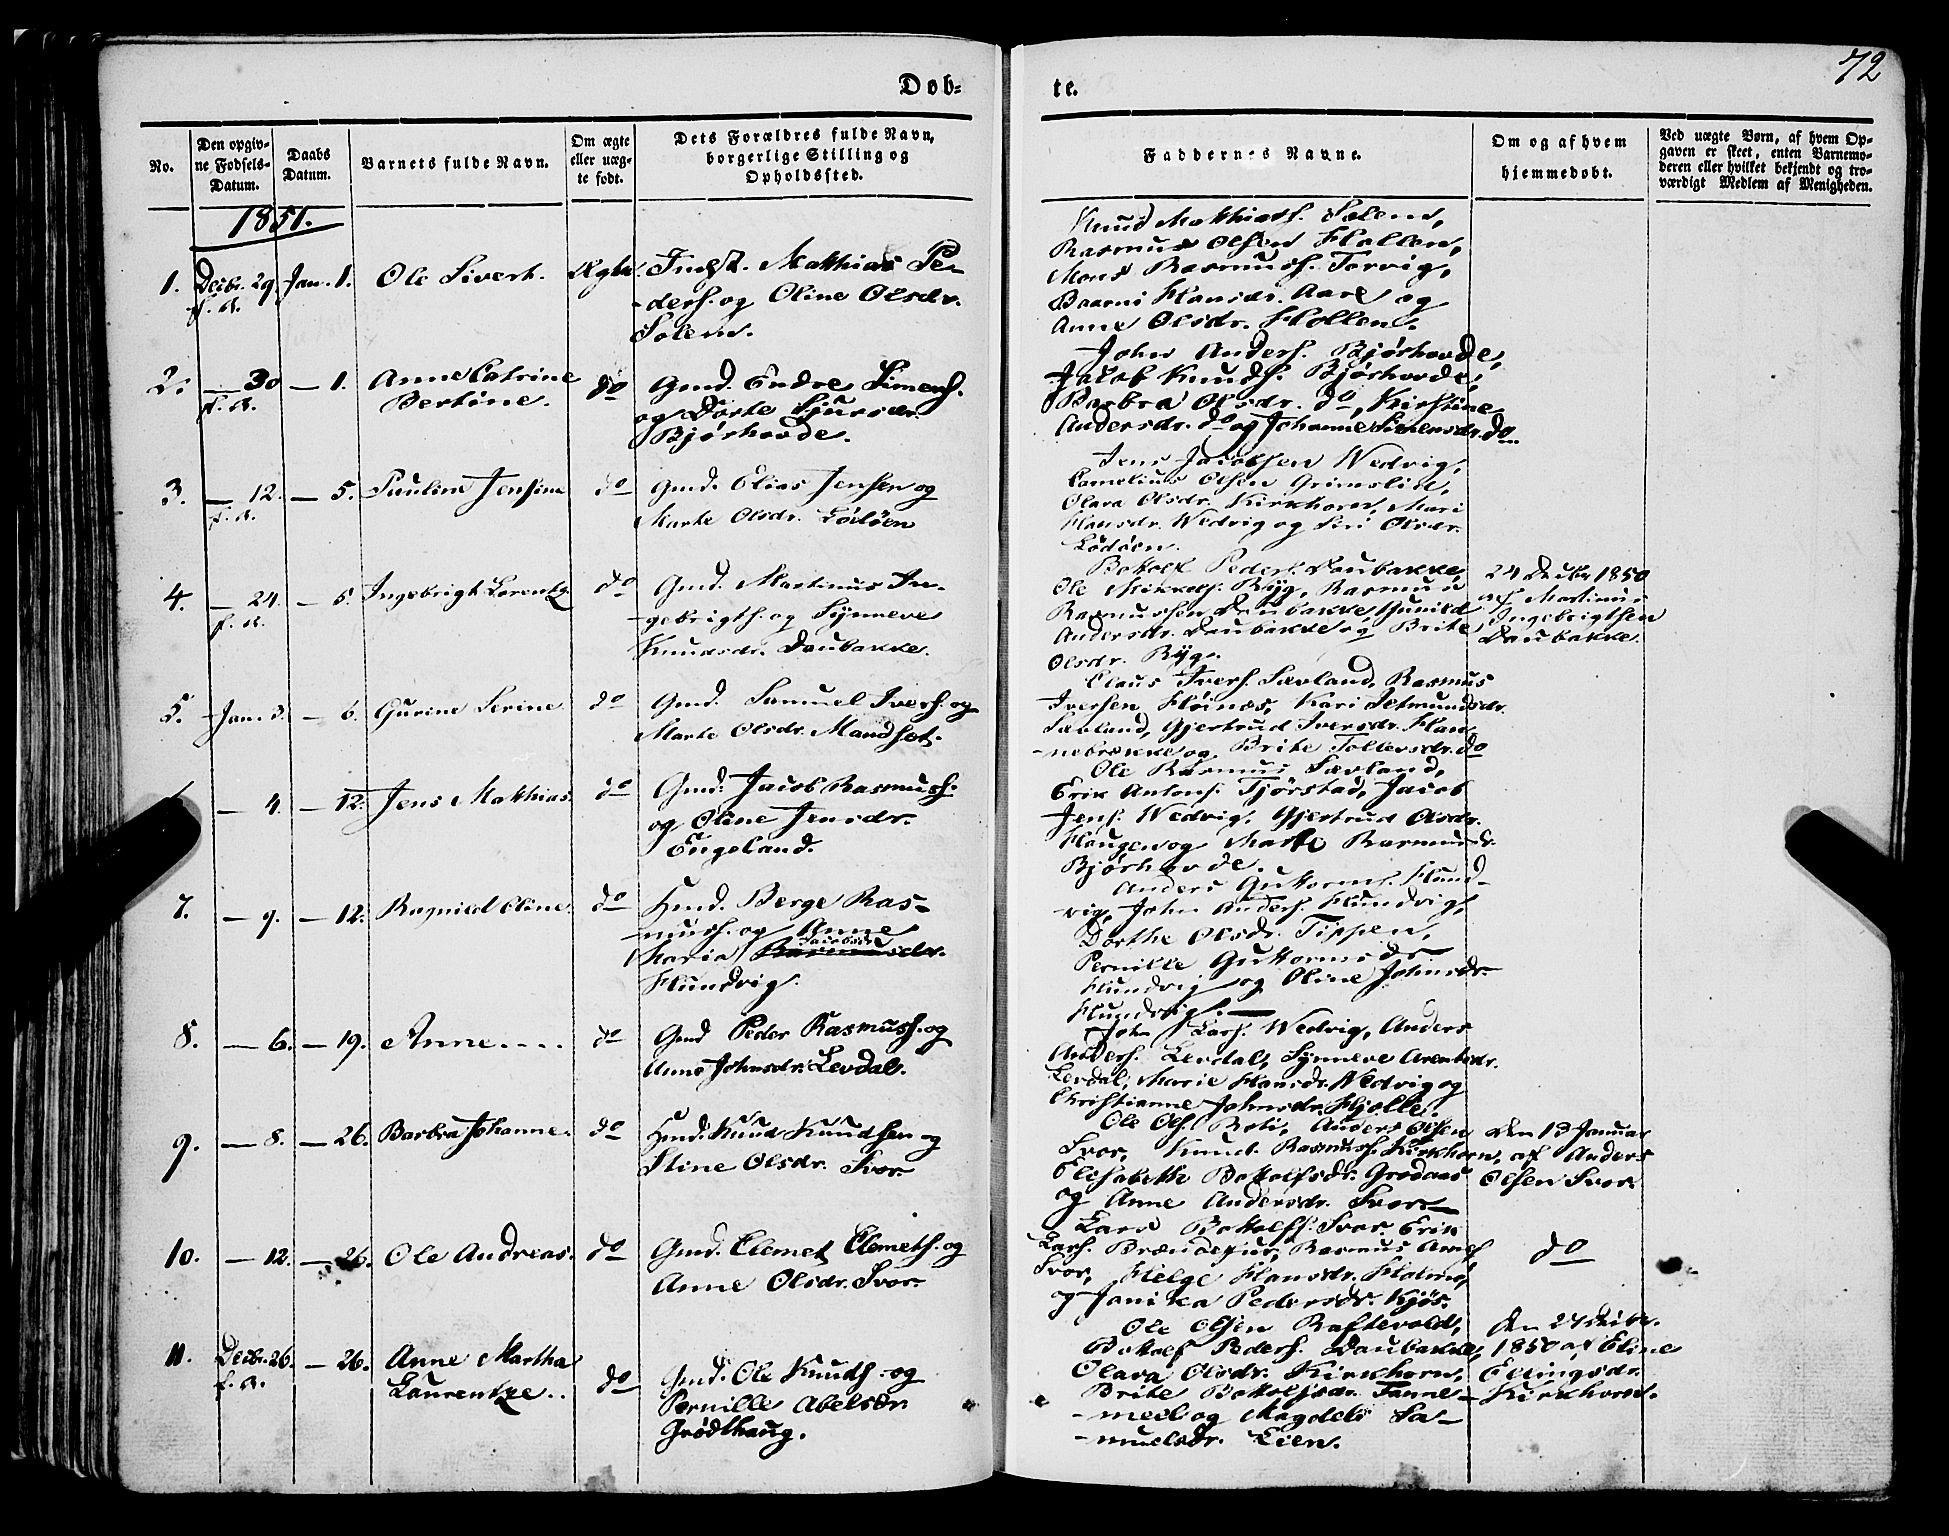 72
Døb-
te.
No.
Den opgiv-
ne Fødsels-
Datum.
Daabs
Datum.
Barnets fulde Navn.
Om ægte
eller uæg-
te født.
Dets Forældres fulde Navn,
borgerlige Stilling og
Opholdssted.
Faddernes Navne.
Om og af hvem
hjemmedøbt.
Ved uægte Børn, af hvem Op-
gaven er skeet, enten Barnemo-
deren eller hvilket bekjendt og tro-
værdigt Medlem af Menigheden.
1851.
1. Decbr. 29 Jan. 1. Ole Sivert. Ægte Indst. Mathias Pe-
f. A.
ders. og Oline Olsdr.
Solem.
Knud Mathias. Solem,
Rasmus Olsen Hollen,
Mons Rasmuss. Torvig,
Hansdr. Aare og
Anne Olsdr. Hollen.
2. — 30 — 1. Anne Catrine do Gmd. Endre Simens.
f. A. Bertine.
og Dorte Sjursdr.
Bjørhovde.
John Anders. Bjørhovde,
Jacob Knuds. Bjørhovde,
Barbra Olsdr. do, Kirstine
Andersdr. do og Johanne Simensdr. do
3. — 12. — 5. Pauline Jensine do Gmd. Elias Jensen og
f. A.
Marte Olsdr. Lödöen
Jens Jacobsen Wedvig,
Cornelius Olsen Grimslid,
Olava Olsdr. Kirkhorn, Mari
Hansdr. Wedvig og Siri Olsdr.
Lödöen.
4. — 24. — 5. Ingebrigt Lorentz do Gmd. Martinus In-
f. A.
gebrigts. og Synneve
Knudsdr. Daubakke.
Botolf Peders. Daubakke,
Ole Mikkels. Ryg, Rasmus
Rasmussen Daubakke, Gunild
Andersdr. Daubakke og Brite
Olsdr. Ryg.
24 Decbr 1850
af Martinus
Ingebrigtsen
Daubakke.
5. Jan. 3. — 6. Gurine Serine do Gmd. Samuel Ivers. og
Marte Olsdr. Mandset.
Claus Ivers. Sævland, Rasmus
Iversen Høinæs, Kari Jetmundsdr.
Sævland, Gjertrud Iversdr. Han-
nebrekke og Brite Tollevsdr. do
— 4. — 12. Jens Mathias. do Gmd. Jacob Rasmuss.
og Oline Jensdr.
Engeland.
Ole Rasmus Sævland,
Erik Antons. Tjørstad, Jacob
Jens. Wedvig, Gjertrud Olsdr.
Haugen og Marte Rasmusdr.
Bjørhovde.
7. — 9. — 12. Ragnild Eline. do Hmd. Berge Ras-
muss. og Anne
Jacobsdr
Maria Rasmusdr.
Hundvig.
Anders Guttorms. Hund-
vig, John Anders. Hundvig,
Dorthe Olsdr. Tippen,
Pernille Guttormsdr
Hundvig og Oline Johnsdr
Hundvig.
8. — 6. — 19. Anne.... do Gmd Peder Rasmuss. og
Anne Johnsdr. Levdal.
John Lars. Wedvig, Anders
Anders. Levdal, Synneve Arentsdr.
Levdal, Marie Hansdr. Wedvig og
Christianne Johnsdr. Hjelle.
9. — 8. — 26. Barbra Johanne. do Hmd. Knud Knudsen og
Stine Olsdr. Svor
Ole Ols. Roti, Anders Olsen
Svor, Knud Rasmuss. Kirkhorn,
Elisabethe Botolfsdr. Grodaas
og Anne Andersdr. Svor
den 13 Januar
af Anders
Olsen Svor.
10. — 12. — 26. Ole Andreas. do Gmd. Clemet Clemets. og
Anne Olsdr. Svor
Lars Botolfs. Svor, Erik
Lars. Brændejur, Rasmus
Svor, Helge Hansdr. Holme,
og Janikea Pedersdr. Kjøs.
do
11. Decbr. 26. — 26. Anne Martha do Gmd. Ole Knuds. og
f. A. Laurentze..
Pernille Abelsdr
Grødthaug.
Ole Olsen Raftevold,
Botolf Peders. Daubakke,
Olava Olsdr. Kirkhorn,
Brite Botolfsdr. Tanne-
meel og Magdeli Sa-
muelsdr. Eien.
den 27 Decbr.
1850 af Eline
Ellingsdr.
Kirkhorn.